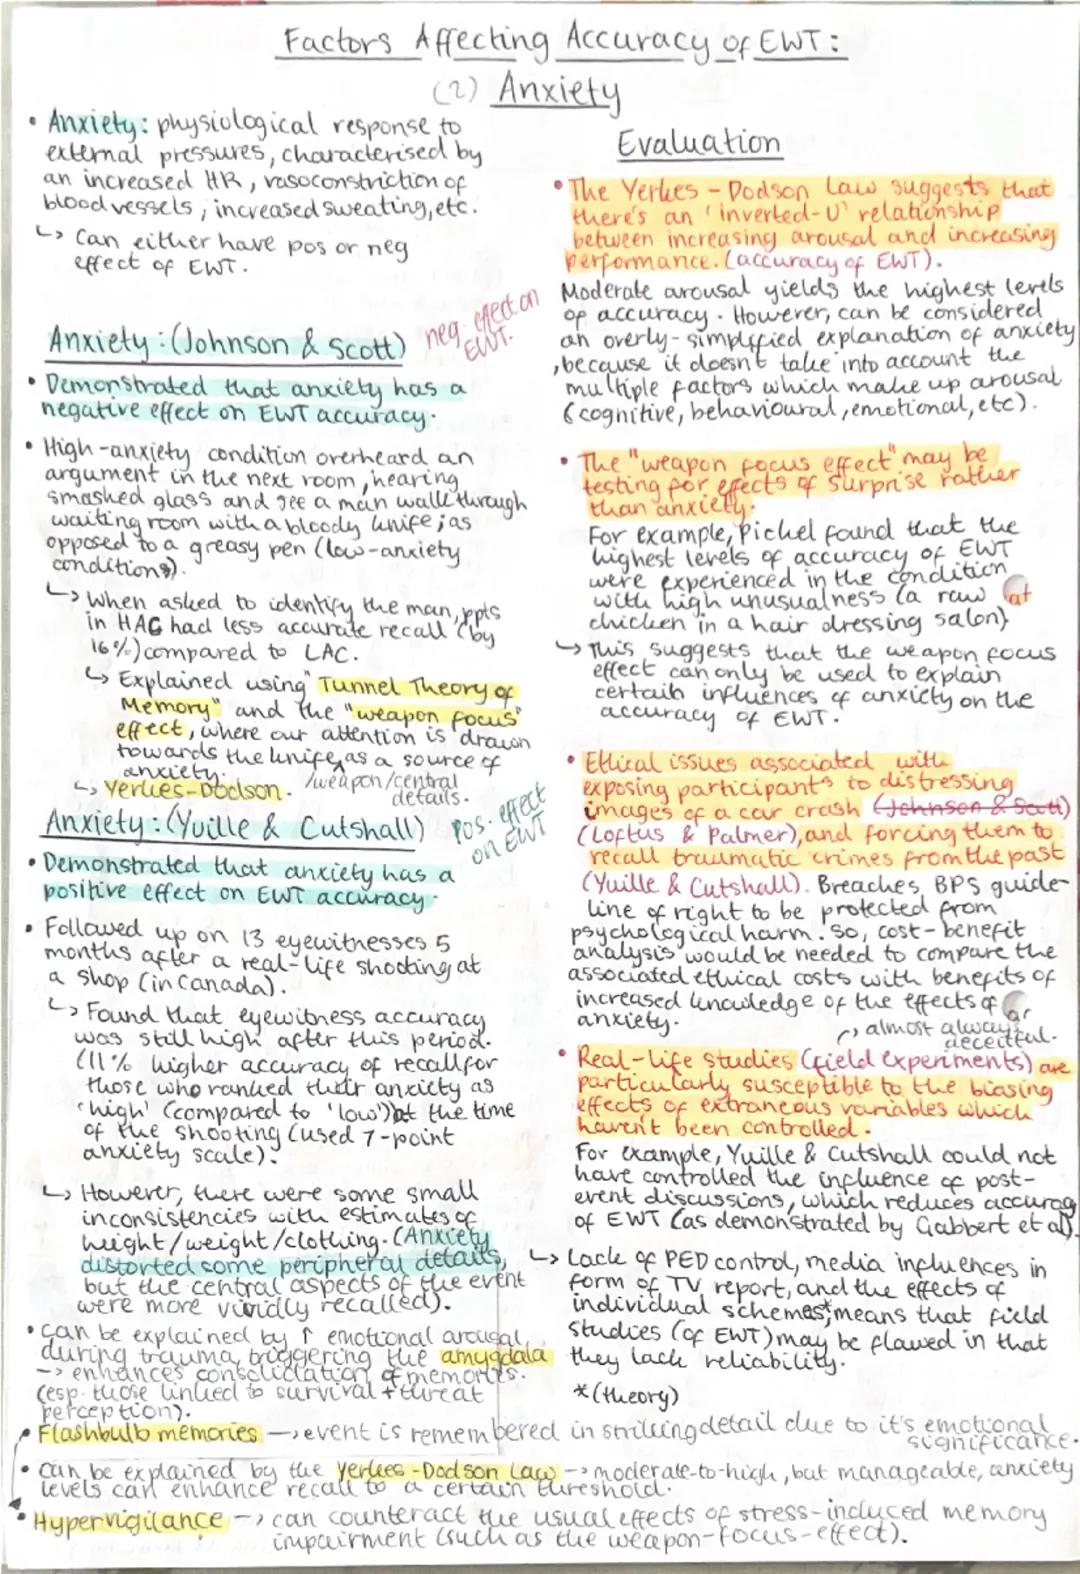 Factors Affecting Accuracy of EWT:
(2) Anxiety
• Anxiety: physiological response to
external pressures, characterised by
an increased HR, vasoconstriction of
blood vessels, increased sweating, etc.
↳ Can either have pos or neg
effect of EWT.
Anxiety: (Johnson & Scott)
neg. effect on
EWT.
• Demonstrated that anxiety has a
negative effect on EWT accuracy.
• High-anxiety condition overheard an
argument in the next room, hearing
smashed glass and see a man walk through
waiting room with a bloody knife; as
opposed to a greasy pen (low-anxiety
conditions).
↳ When asked to identify the man, ppts
in HAC had less accurate recall (by
16%) compared to LAC.
↳ Explained using "Tunnel Theory of
Memory" and the "weapon focus"
effect, where our attention is drawn
towards the knife, as a source of
anxiety.
/weapon/central
details.
↳ Yerkes-Dodson.
Anxiety: (Yuille & Cutshall)
pos. effect
on EWT
• Demonstrated that anxiety has a
positive effect on EWT accuracy.
• Followed up on 13 eyewitnesses 5
months after a real-life shooting at
a shop (in Canada).
↳ Found that eyewitness accuracy
was still high after this period.
(11% higher accuracy of recall for
those who ranked their anxiety as
'high' (compared to 'low') at the time
of the shooting (used 7-point
anxiety scale).
↳ However, there were some small
inconsistencies with estimates of
height/weight/clothing. (Anxiety
distorted some peripheral details,
but the central aspects of the event
were more vividly recalled).
• can be explained by ↑ emotional arousal
during trauma, triggering the amygdala
-> enhances consolidation of memories.
(esp. those linked to survival + threat
perception).
• Flashbulb memories -> event is remembered in striking detail due to it's emotional
significance.
• can be explained by the Yerkes-Dodson Law -> moderate-to-high, but manageable, anxiety
levels can enhance recall to a certain threshold.
• Hypervigilance -> can counteract the usual effects of stress-induced memory
impairment (such as the weapon-focus-effect).
Evaluation
• The Yerkes-Dodson Law suggests that
there's an 'inverted-U' relationship
between increasing arousal and increasing
performance. (accuracy of EWT).
Moderate arousal yields the highest levels
of accuracy. However, can be considered
an overly-simplified explanation of anxiety
, because it doesn't take into account the
multiple factors which make up arousal
(cognitive, behavioural, emotional, etc).
• The "weapon focus effect" may be
testing for effects of surprise rather
than anxiety.
For example, Pickel found that the
highest levels of accuracy of EWT
were experienced in the condition
with high unusualness (a raw
chicken in a hair dressing salon)
↳ This suggests that the weapon focus
effect can only be used to explain
certain influences of anxiety on the
accuracy of EWT.
• Ethical issues associated with
exposing participants to distressing
images of a car crash (Johnson & Scott)
(Loftus & Palmer), and forcing them to
recall traumatic crimes from the past
(Yuille & Cutshall). Breaches BPS guide-
line of right to be protected from
psychological harm. So, cost-benefit
analysis would be needed to compare the
associated ethical costs with benefits of
increased knowledge of the effects of
anxiety.
↱ almost always
deceitful.
• Real-life studies (field experiments) are
particularly susceptible to the biasing
effects of extraneous variables which
haven't been controlled.
For example, Yuille & Cutshall could not
have controlled the influence of post-
event discussions, which reduces accuracy
of EWT (as demonstrated by Gabbert et al).
↳ Lack of PED control, media influences in
form of TV report, and the effects of
individual schemas*, means that field
studies (of EWT) may be flawed in that
they lack reliability.
*(theory)